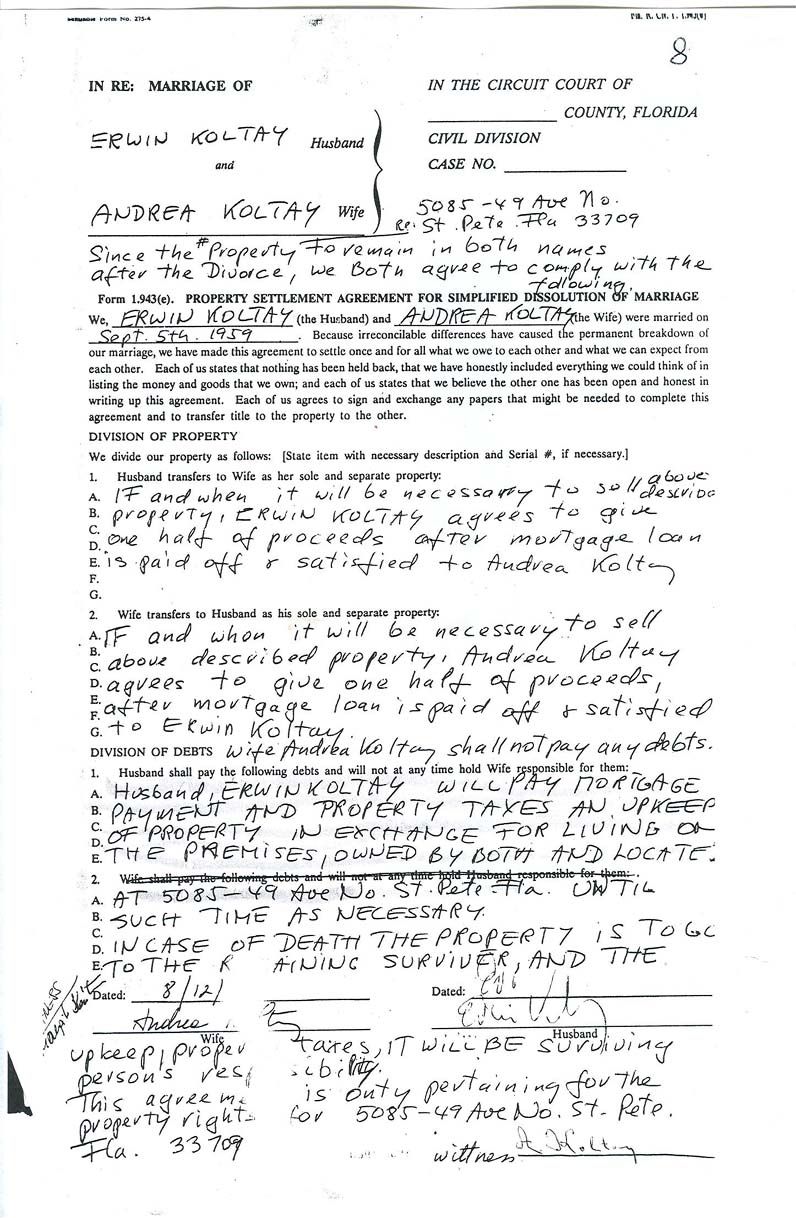 Form No. 275-4
8
IN RE: MARRIAGE OF
IN THE CIRCUIT COURT OF
COUNTY, FLORIDA
ERWIN KOLTAY Husband
CIVIL DIVISION
and
CASE NO.
ANDREA KOLTAY Wife
5085-49 Ave No.
Re: St. Pete. Fla 33709
Since the # Property to remain in both names
after the Divorce, we Both agree to comply with the
following.
Form 1.943(e). PROPERTY SETTLEMENT AGREEMENT FOR SIMPLIFIED DISSOLUTION OF MARRIAGE
We, ERWIN KOLTAY (the Husband) and ANDREA KOLTAY (the Wife) were married on
Sept. 5th. 1959. Because irreconcilable differences have caused the permanent breakdown of
our marriage, we have made this agreement to settle once and for all what we owe to each other and what we can expect from
each other. Each of us states that nothing has been held back, that we have honestly included everything we could think of in
listing the money and goods that we own; and each of us states that we believe the other one has been open and honest in
writing up this agreement. Each of us agrees to sign and exchange any papers that might be needed to complete this
agreement and to transfer title to the property to the other.
DIVISION OF PROPERTY
We divide our property as follows: [State item with necessary description and Serial #, if necessary.]
1. Husband transfers to Wife as her sole and separate property:
A. IF and when it will be necessary to sell above describd
B. property, ERWIN KOLTAY agrees to give
C.
D. one half of proceeds after mortgage loan
E. is paid off & satisfied to Andrea Koltay
F.
G.
2. Wife transfers to Husband as his sole and separate property:
A. IF and when it will be necessary to sell
B.
C. above described property, Andrea Koltay
D. agrees to give one half of proceeds,
E.
F. after mortgage loan is paid off & satisfied
G. to Erwin Koltay.
DIVISION OF DEBTS Wife Andrea Koltay shall not pay any debts.
1. Husband shall pay the following debts and will not at any time hold Wife responsible for them:
A. Husband, ERWIN KOLTAY WILL PAY MORTGAGE
B. PAYMENT AND PROPERTY TAXES AN UPKEEP
C.
D. OF PROPERTY IN EXCHANGE FOR LIVING ON
E. THE PREMISES, OWNED BY BOTH AND LOCATE.
2. Wife shall pay the following debts and will not at any time hold Husband responsible for them:
A. AT 5085-49 Ave No. St. Pete. Fla. UNTIL
B. SUCH TIME AS NECESSARY.
C.
D. IN CASE OF DEATH THE PROPERTY IS TO GO
E. TO THE R AINING SURVIVER, AND THE
Dated: 8/12/
Dated:
Andrea
Wife
Husband
upkeep, proper taxes, IT WILL BE SURVIVING
person's res ibility.
This agreeme is only pertaining for the
property rights for 5085-49 Ave No. St. Pete.
Fla. 33709
wittness A. Koltay